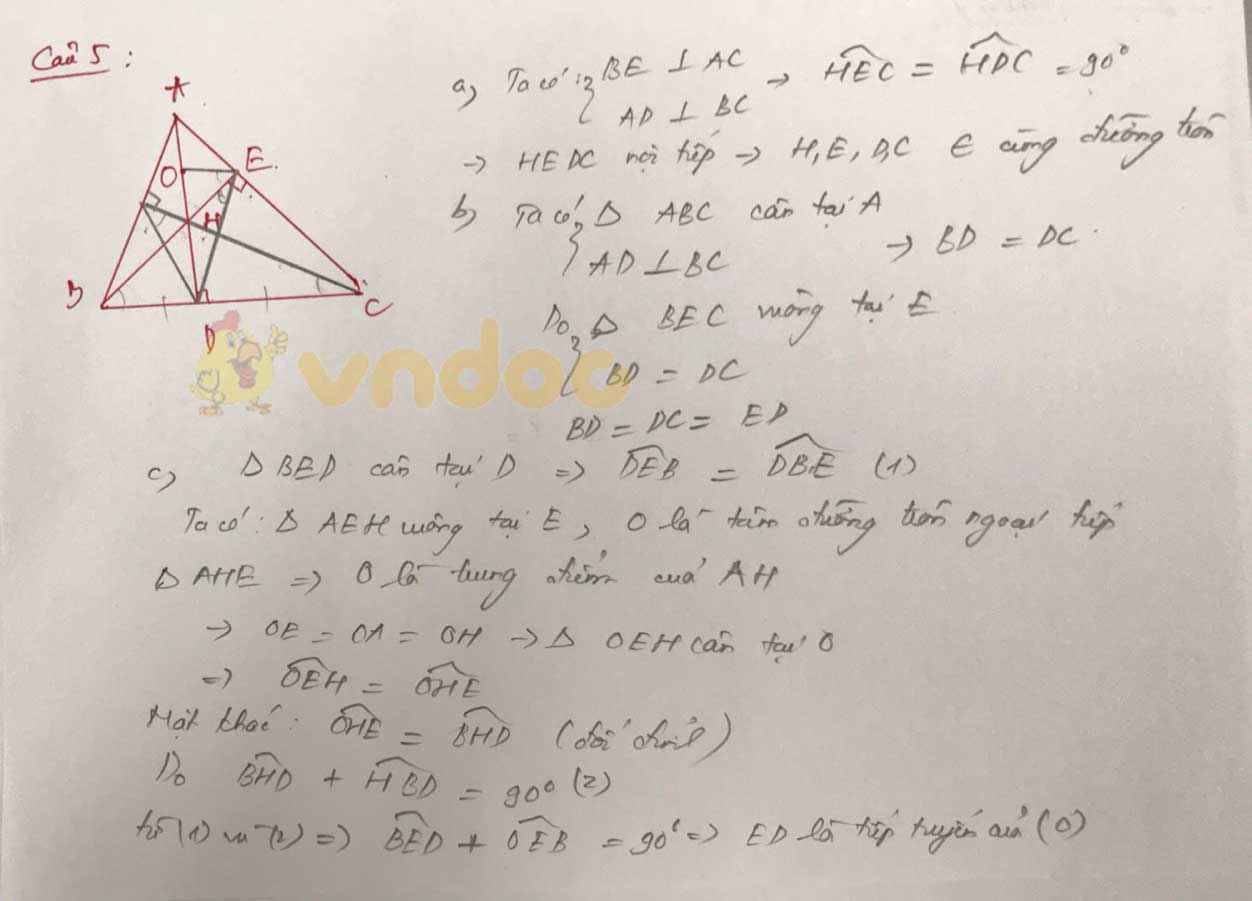 Câu 5 :
A
O
E
H
B
D
C
vndoc
a) Ta có : { BE ⊥ AC
AD ⊥ BC
→ HEC = HDC = 90°
→ HEDC nội tiếp → H, E, D, C ∈ cùng đường tròn
b) Ta có { Δ ABC cân tại A
AD ⊥ BC
→ BD = DC.
Do { Δ BEC vuông tại E
BD = DC
BD = DC = ED
c) Δ BED cân tại D => DEB = DBE (1)
Ta có : Δ AEH vuông tại E, O là tâm đường tròn ngoại tiếp
Δ AHE => O là trung điểm của AH
→ OE = OA = OH → Δ OEH cân tại O
=> OEH = OHE
Mặt khác : OHE = BHD (đối đỉnh)
Do BHD + HBD = 90° (2)
từ (1) và (2) => BED + OEB = 90° => ED là tiếp tuyến của (O)